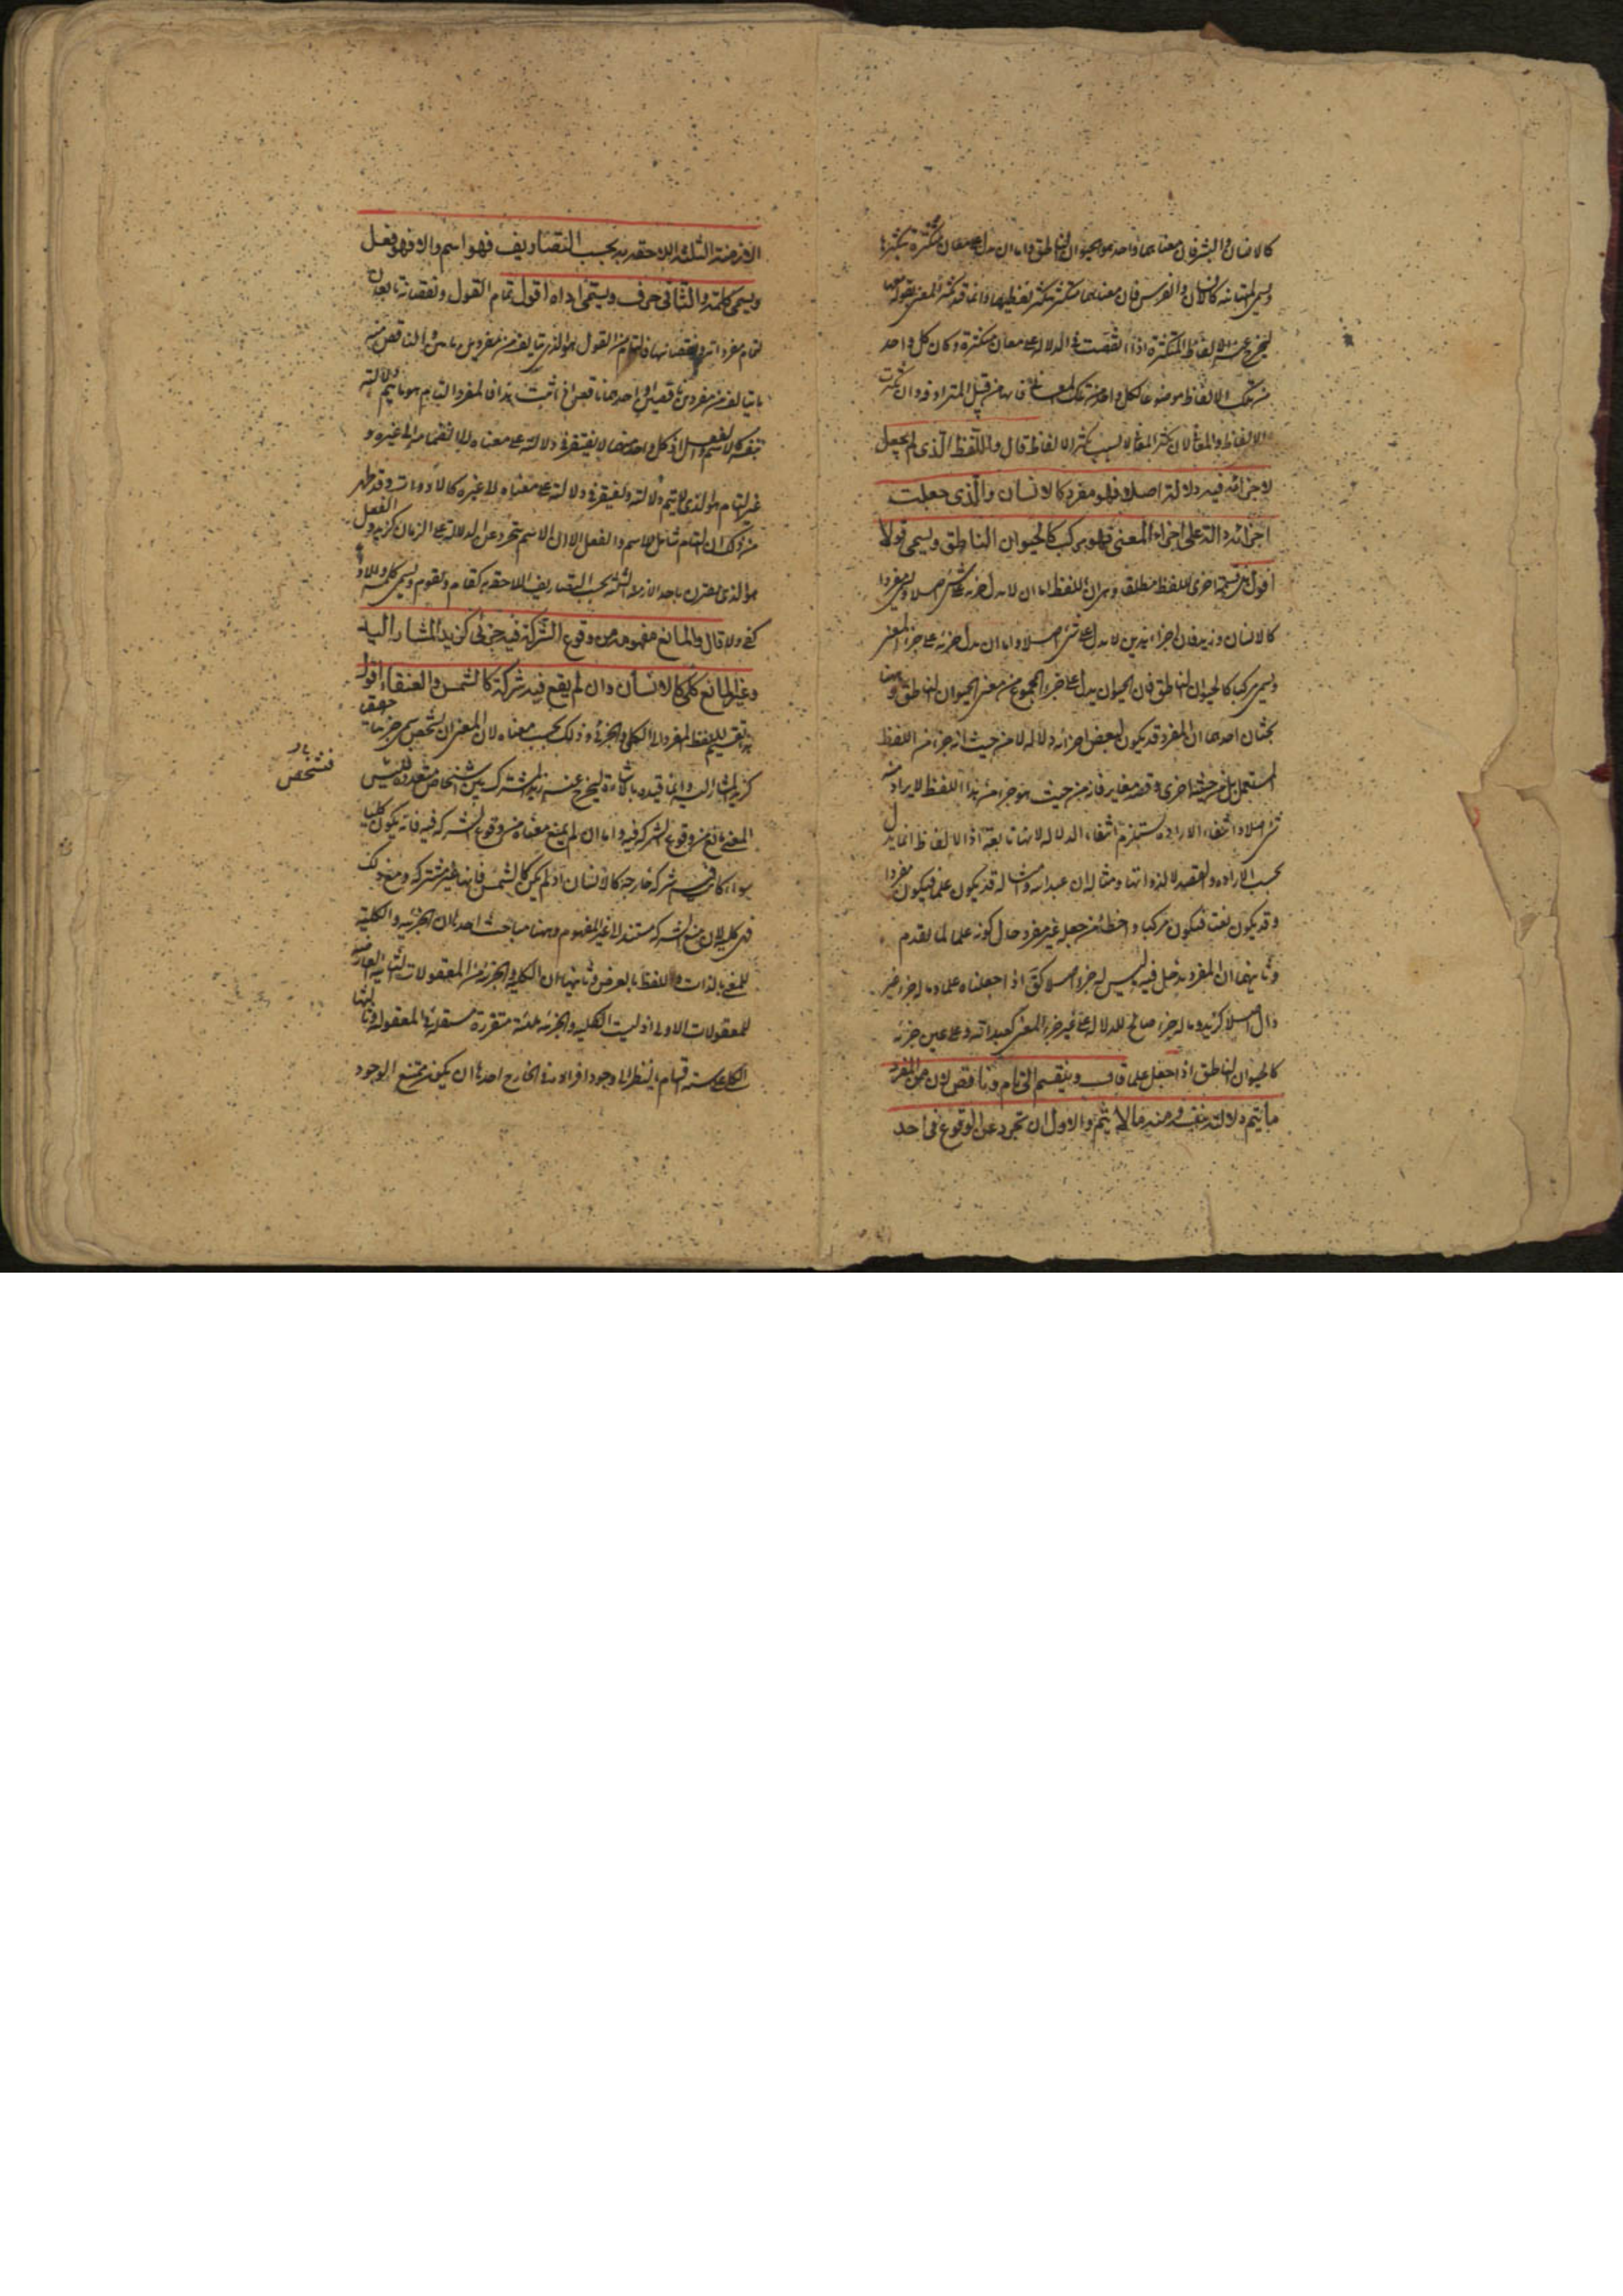 كالانسان والبشر فان معناهما واحد هو الحيوان الناطق واما ان يدل على معان متكثرة بتكثرها
ويسمى المتباينة كالانسان والفرس فان معناهما متكثر بتكثر لفظيهما وانما قيد تكثر المعنى بقوله
ليخرج عنه الالفاظ المتكثرة اذا اتفقت فى الدلالة على معان متكثرة وكان كل واحد
من تلك الالفاظ موضوعا لكل واحد من تلك المعانى فانها من قبيل المترادفة وان تكثرت
الالفاظ والمعانى لان تكثر المعانى لا بسبب تكثر الالفاظ قال واللفظ الذى لم يجعل
لاجزائه فيه دلالة اصلا فهو مفرد كالانسان والذى جعلت
اجزائه دالة على اجزاء المعنى فهو مركب كالحيوان الناطق ويسمى قولا
اقول هذه قسمة اخرى للفظ مطلقا وهى ان اللفظ اما ان لا يدل جزئه على شئ اصلا ويسمى مفردا
كالانسان وزيد فان اجزاء هذين لا يدل على شئ اصلا واما ان يدل جزئه على جزء المعنى
ويسمى مركبا كالحيوان الناطق فان الحيوان يدل على جزء المجموع من معنى الحيوان الناطق وههنا
بحثان احدهما ان المفرد قد يكون لبعض اجزائه دلالة لا من حيث انه جزء من اللفظ
المستعمل بل من حيثية اخرى وقصد مغاير فانه من حيث هو جزء من هذا اللفظ لا يراد منه
شئ اصلا وانتفاء الارادة يستلزم انتفاء الدلالة لانها تابعة اذ الالفاظ انما يدل
بحسب الارادة والقصد لا لذواتها ومثاله ان عبد الله وامثاله قد يكون علما فيكون مفردا
وقد يكون نعتا فيكون مركبا واخطأ من جعله غير مفرد حال كونه علما لما تقدم
وثانيهما ان المفرد يدخل فيه ما ليس له جزء اصلا كق اذا جعلناه علما وما له جزء غير
دال اصلا كزيد وما له جزء صالح للدلالة على غير جزء المعنى كعبد الله وعلى عين جزئه
كالحيوان الناطق اذا جعل علما قال وينقسم الى تام وناقص لان من المفرد
ما يتم دلالته بنفسه ومنه ما لا يتم والاول ان تجرد عن الوقوع فى احد
الازمنة الثلثة اللاحقة به بحسب التصاريف فهو اسم والا فهو فعل
ويسمى كلمة والثانى حرف ويسمى اداة اقول تمام القول ونقصانه تابعان
لتمام مفرداته ونقصانها فالتام من القول هو الذى يتالف من مفردين تامين والناقص منه
ما يتالف من مفردين ناقصين او احدهما ناقص اذا ثبت هذا فالمفرد التام هو ما يتم دلالته
بنفسه كالاسم والفعل اذ كل واحد منهما لا يفتقر فى دلالته على معناه الى انضمامه الى غيره و
غير التام هو الذى لا يتم دلالته ويفتقر فى دلالته على معناه الى غيره كالادوات وقد ظهر
من ذلك ان التام شامل للاسم والفعل الا ان الاسم يتجرد عن الدلالة على الزمان كزيد والفعل
هو الذى يقترن باحد الازمنة الثلثة بحسب التصاريف اللاحقة به كقام ويقوم ويسمى كلمة والاداة
كفى ولا قال والمانع مفهومه من وقوع الشركة فيه جزئى كزيد المشار اليه
وغير المانع كلى كالانسان وان لم يقع فيه شركة كالشمس والعنقاء اقول
هذا تقسيم للفظ المفرد الى الكلى والجزئى وذلك بحسب معناه لان المعنى ان تشخص سمى جزئيا حقيقيا
كزيد المشار اليه وانما قيده بالاشارة ليخرج عنه زيد المشترك بين اشخاص متعددة فليس
المعنى مانع من وقوع الشركة فيه واما ان لم يمنع معناه من وقوع الشركة فيه فانه يكون كليا
سواء كان فيه شركة خارجية كالانسان او لم يكن كالشمس فانها غير مشتركة ومع ذلك
فهى كلية لان منع الشركة مستند الى غير المفهوم وههنا مباحث احدها ان الجزئية والكلية
للمعنى بالذات واللفظ بالعرض وثانيها ان الكلية والجزئية من المعقولات الثانية العارضة
للمعقولات الاولى اذ ليست الكلية والجزئية متقررة مستقلة فى المعقولية وثالثها
الكلى على ستة اقسام بالنظر الى وجود افراده فى الخارج احدها ان يكون ممتنع الوجود
فتشخص